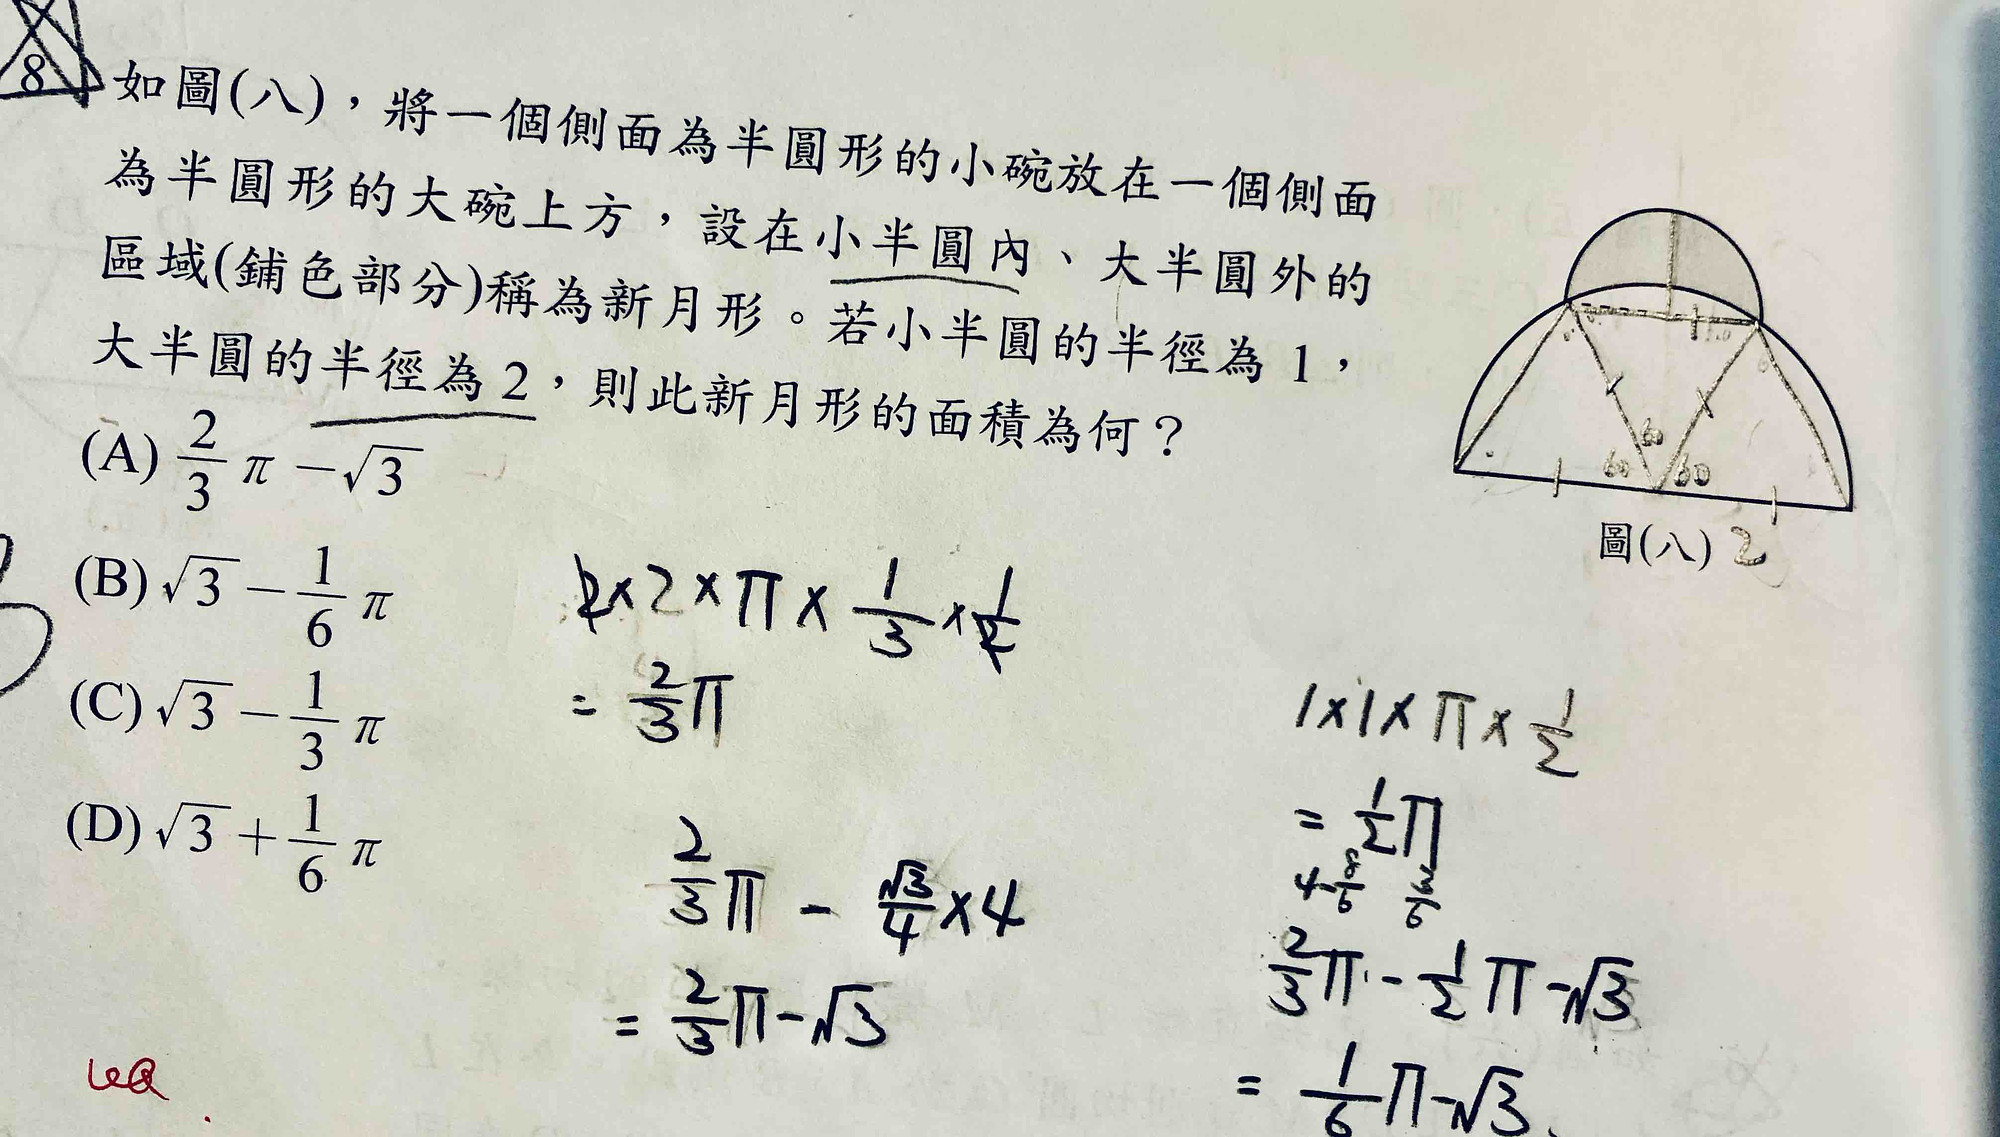 8 如圖(八)，將一個側面為半圓形的小碗放在一個側面
為半圓形的大碗上方，設在小半圓內、大半圓外的
區域(鋪色部分)稱為新月形。若小半圓的半徑為 1，
大半圓的半徑為 2，則此新月形的面積為何？
(A) 2/3 π －√3
(B) √3 － 1/6 π
(C) √3 － 1/3 π
(D) √3 ＋ 1/6 π
60
60 60
圖(八) 2
2×2×π×1/3×1/2
= 2/3 π
2/3 π - √3/4 ×4
= 2/3 π-√3
1×1×π×1/2
= 1/2 π
2/3 π - 1/2 π -√3
= 1/6 π-√3